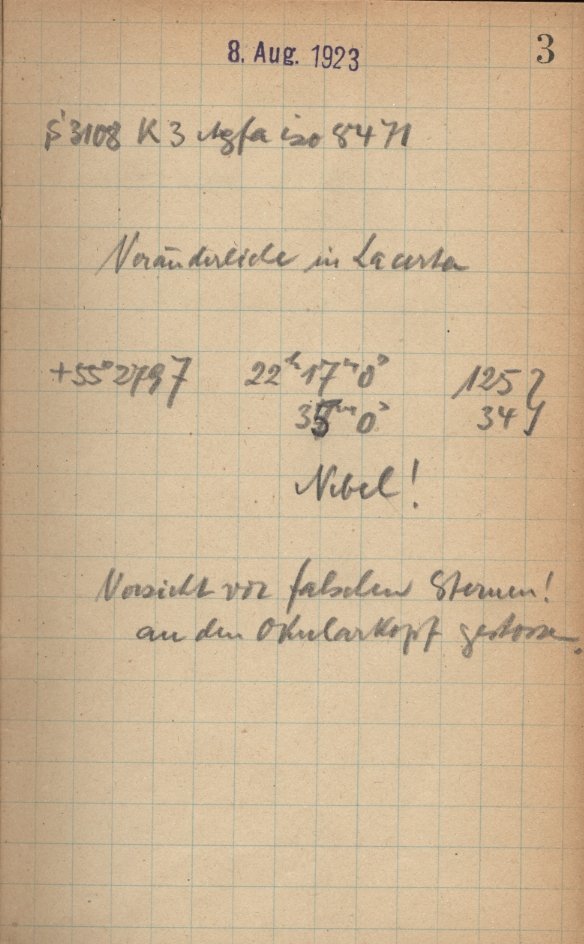 8. Aug. 1923 3
S 3108 K 3 Agfa iso 8471
Veränderliche in Lacerta
+55° 2797 22ʰ 17ᵐ 0ˢ 125 }
35ᵐ 0ˢ 34 }
Nebel!
Vorsicht vor falschen Sternen!
an den Okularkopf gestossen.